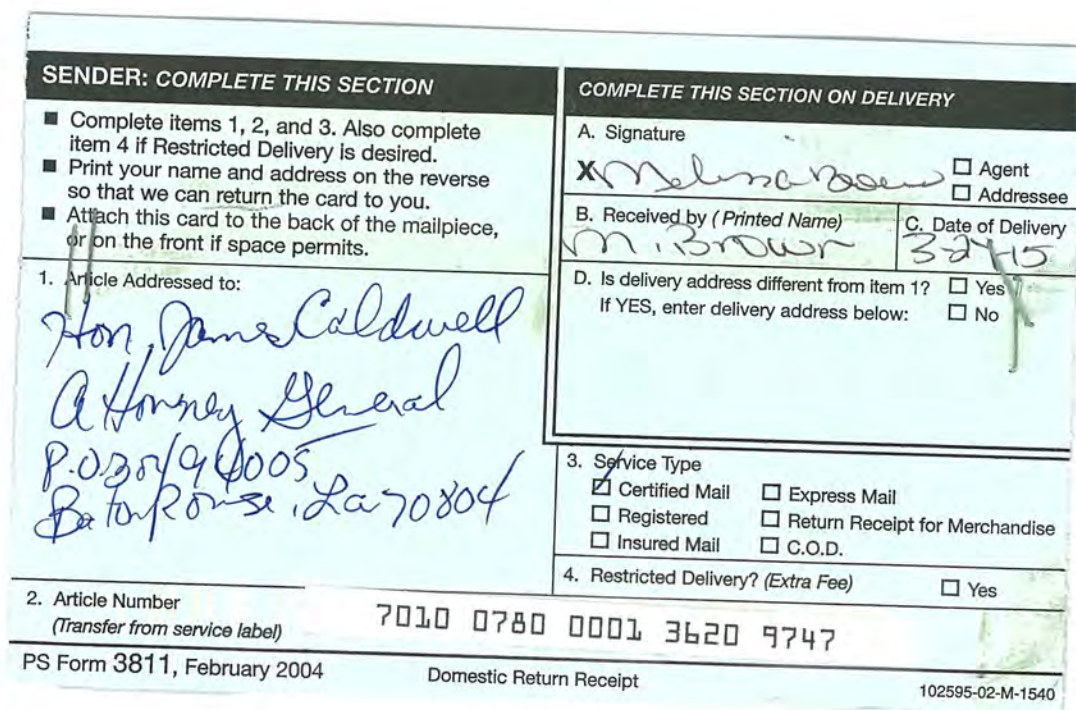 SENDER: COMPLETE THIS SECTION
■ Complete items 1, 2, and 3. Also complete
item 4 if Restricted Delivery is desired.
■ Print your name and address on the reverse
so that we can return the card to you.
■ Attach this card to the back of the mailpiece,
or on the front if space permits.
1. Article Addressed to:
Hon. James Caldwell
Attorney General
P.O. Box 94005
Baton Rouge, La 70804
2. Article Number
(Transfer from service label)
7010 0780 0001 3620 9747
COMPLETE THIS SECTION ON DELIVERY
A. Signature
X Melissa Brown
☐ Agent
☐ Addressee
B. Received by (Printed Name)
M. Brown
C. Date of Delivery
D. Is delivery address different from item 1? ☐ Yes
If YES, enter delivery address below: ☐ No
3. Service Type
☑ Certified Mail ☐ Express Mail
☐ Registered ☐ Return Receipt for Merchandise
☐ Insured Mail ☐ C.O.D.
4. Restricted Delivery? (Extra Fee) ☐ Yes
PS Form 3811, February 2004
Domestic Return Receipt
102595-02-M-1540